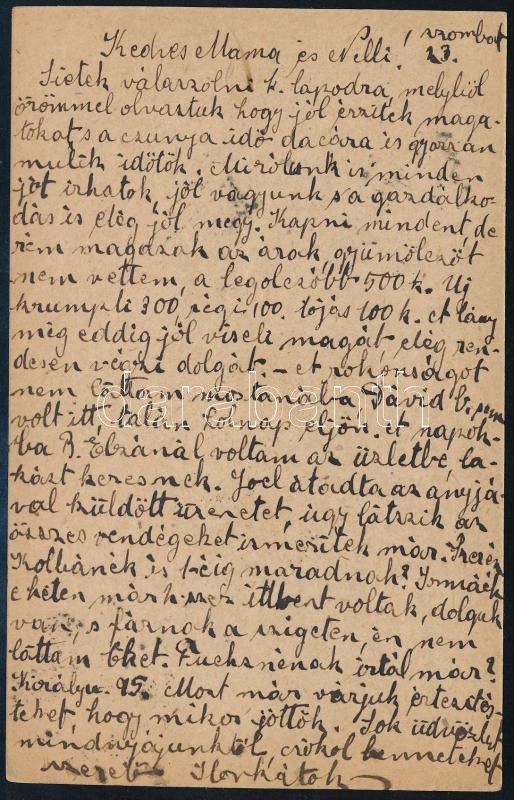 szombat
Kedves Mama és Nelli! 23.
Sietek válaszolni k. lapodra, melyből
örömmel olvastuk hogy jól érzitek maga-
tokat s a csunya idő dacára is gyorsan
mulik időtök. Mirólunk is minden
jót irhatok, jól vagyunk s a gazdálko-
dás is elég jól megy. Kapni mindent de
rém magasak az árak, gyümölcsöt
nem vettem, a legolcsóbb 500 k. Uj
krumpli 300, régi 100. tojás 100 k. A lány
még eddig jól viseli magát elég ren-
desen végzi dolgát. – A rokonságot
nem láttam mostanába Dávid b. sem
volt itt talán holnap eljön. A napok-
ba B. Elzánál voltam az üzletbe, la-
kást keresnek. Joel átadta az anyjá-
val küldött üzenetet, ugy látszik az
összes vendégeket ismeritek már.
Kolbánék is 1-éig maradnak?
e héten már k. szer ittbent voltak, dolguk
van, s fárnak a szigeten, én nem
láttam őket. Fuchs nénak irtál már?
Király u. 95. Most már várjuk értesité-
teket hogy mikor jöttök. Sok üdvözlet
mindnyájunktól, csókol benneteket
szerető Ilonkátok
darabanth